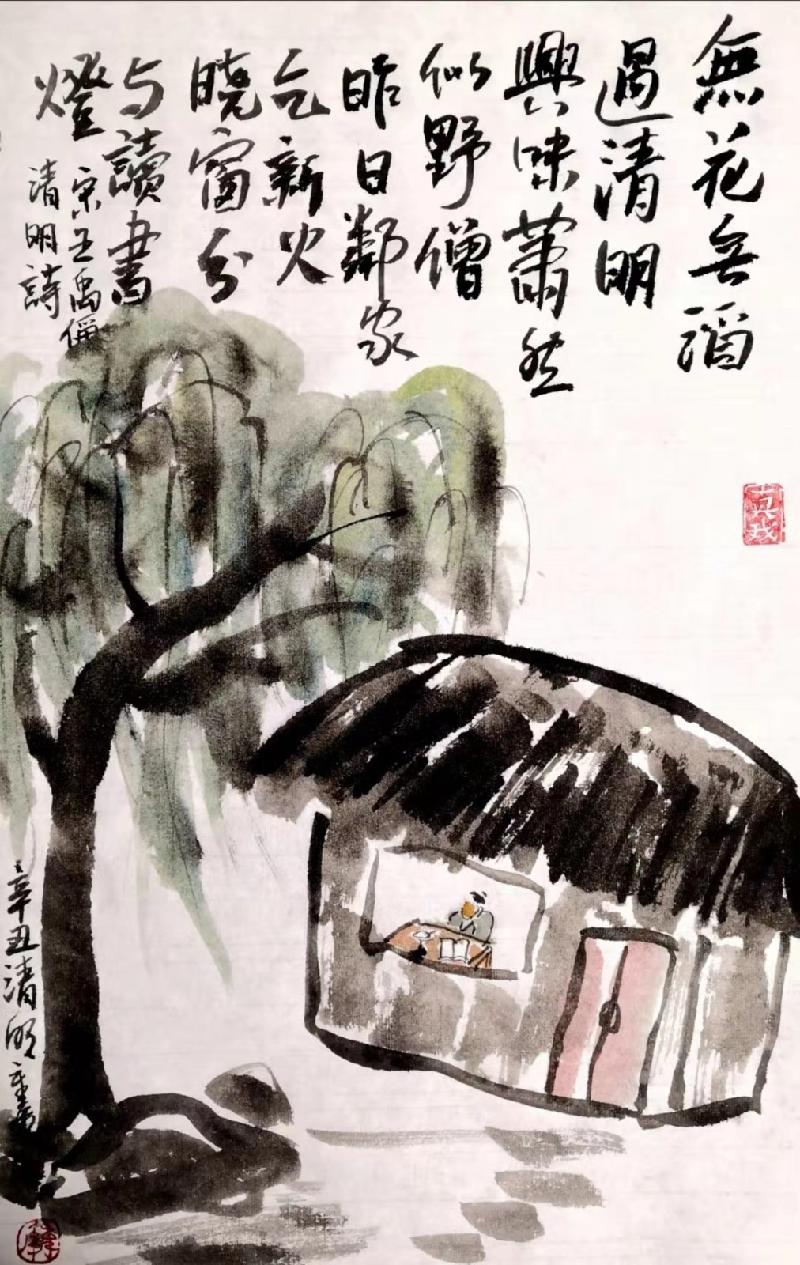 無花无酒
過清明
興味蕭然
似野僧
昨日鄰家
乞新火
曉窗分
与讀書
燈
宋王禹偁
清明詩
辛丑清明